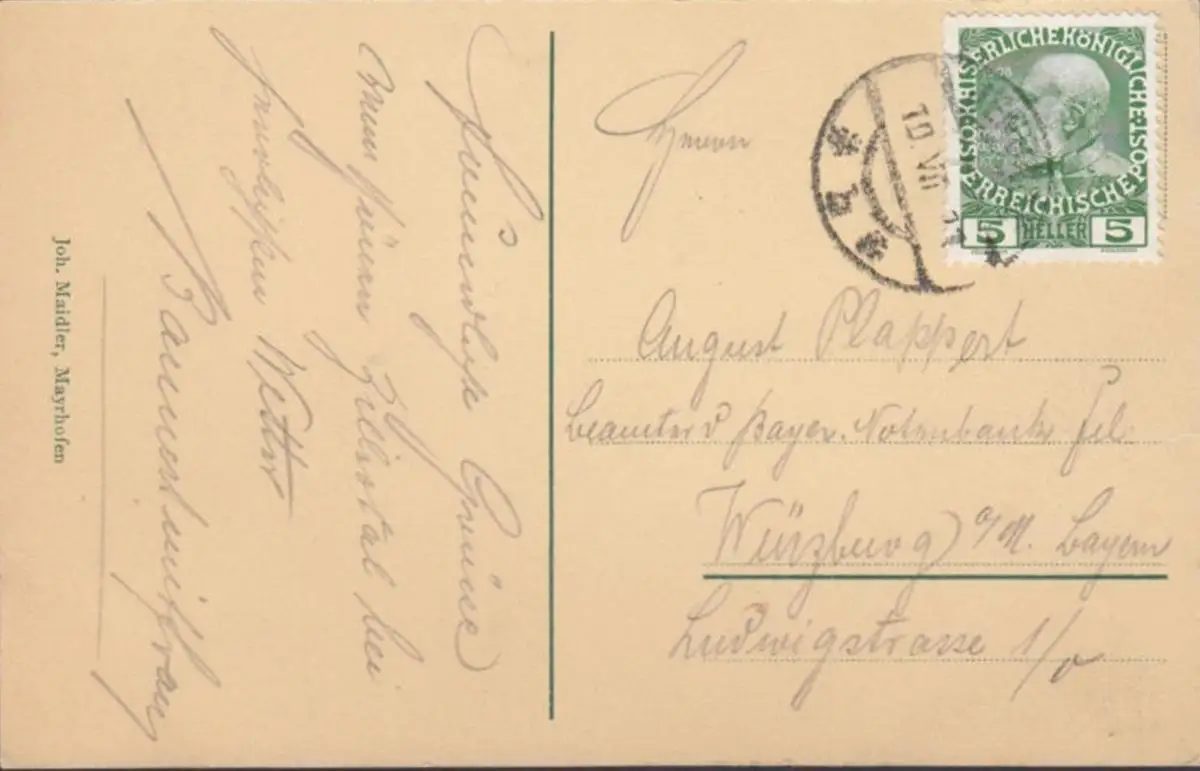 Freundliche Grüsse
vom schönen Zillertal bei
herrlichstem Wetter
Joh. Maidler, Mayrhofen
Herrn
KAISERLICHE KÖNIGLICHE
ÖSTERREICHISCHE POST
5 HELLER 5
10. VII
August Plappert
Beamter d Bayer. Notenbank Fil.
Würzburg a/M. Bayern
Ludwigstrasse 1/0